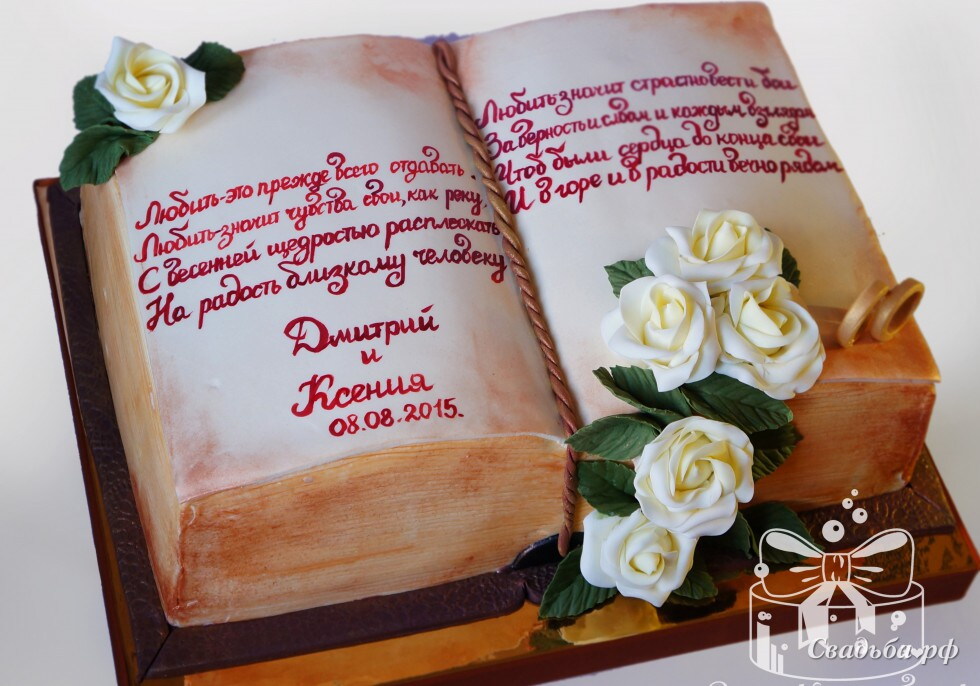 Любить-это прежде всего отдавать.
Любить-значит чувства свои, как реку,
С весенней щедростью расплескать
На радость близкому человеку
Дмитрий
и
Ксения
08.08.2015.
Любить-значит страстно вести бои
За верность и словом и каждым взглядом
Чтоб были сердца до конца свои
И в горе и в радости вечно рядом
Свадьба.рф